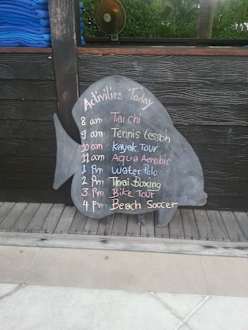 Activities Today
8 am Tai chi
9 am Tennis Lesson
10 am Kayak Tour
11 am Aqua Aerobic
1 Pm Water Polo
2 Pm Thai Boxing
3 Pm Bike Tour
4 Pm Beach Soccer